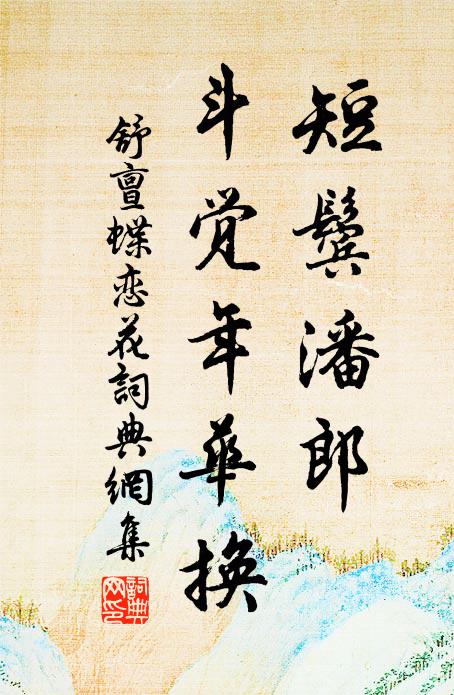 短鬓潘郎
斗觉年华换
舒亶蝶恋花詞典網集
詞典网印